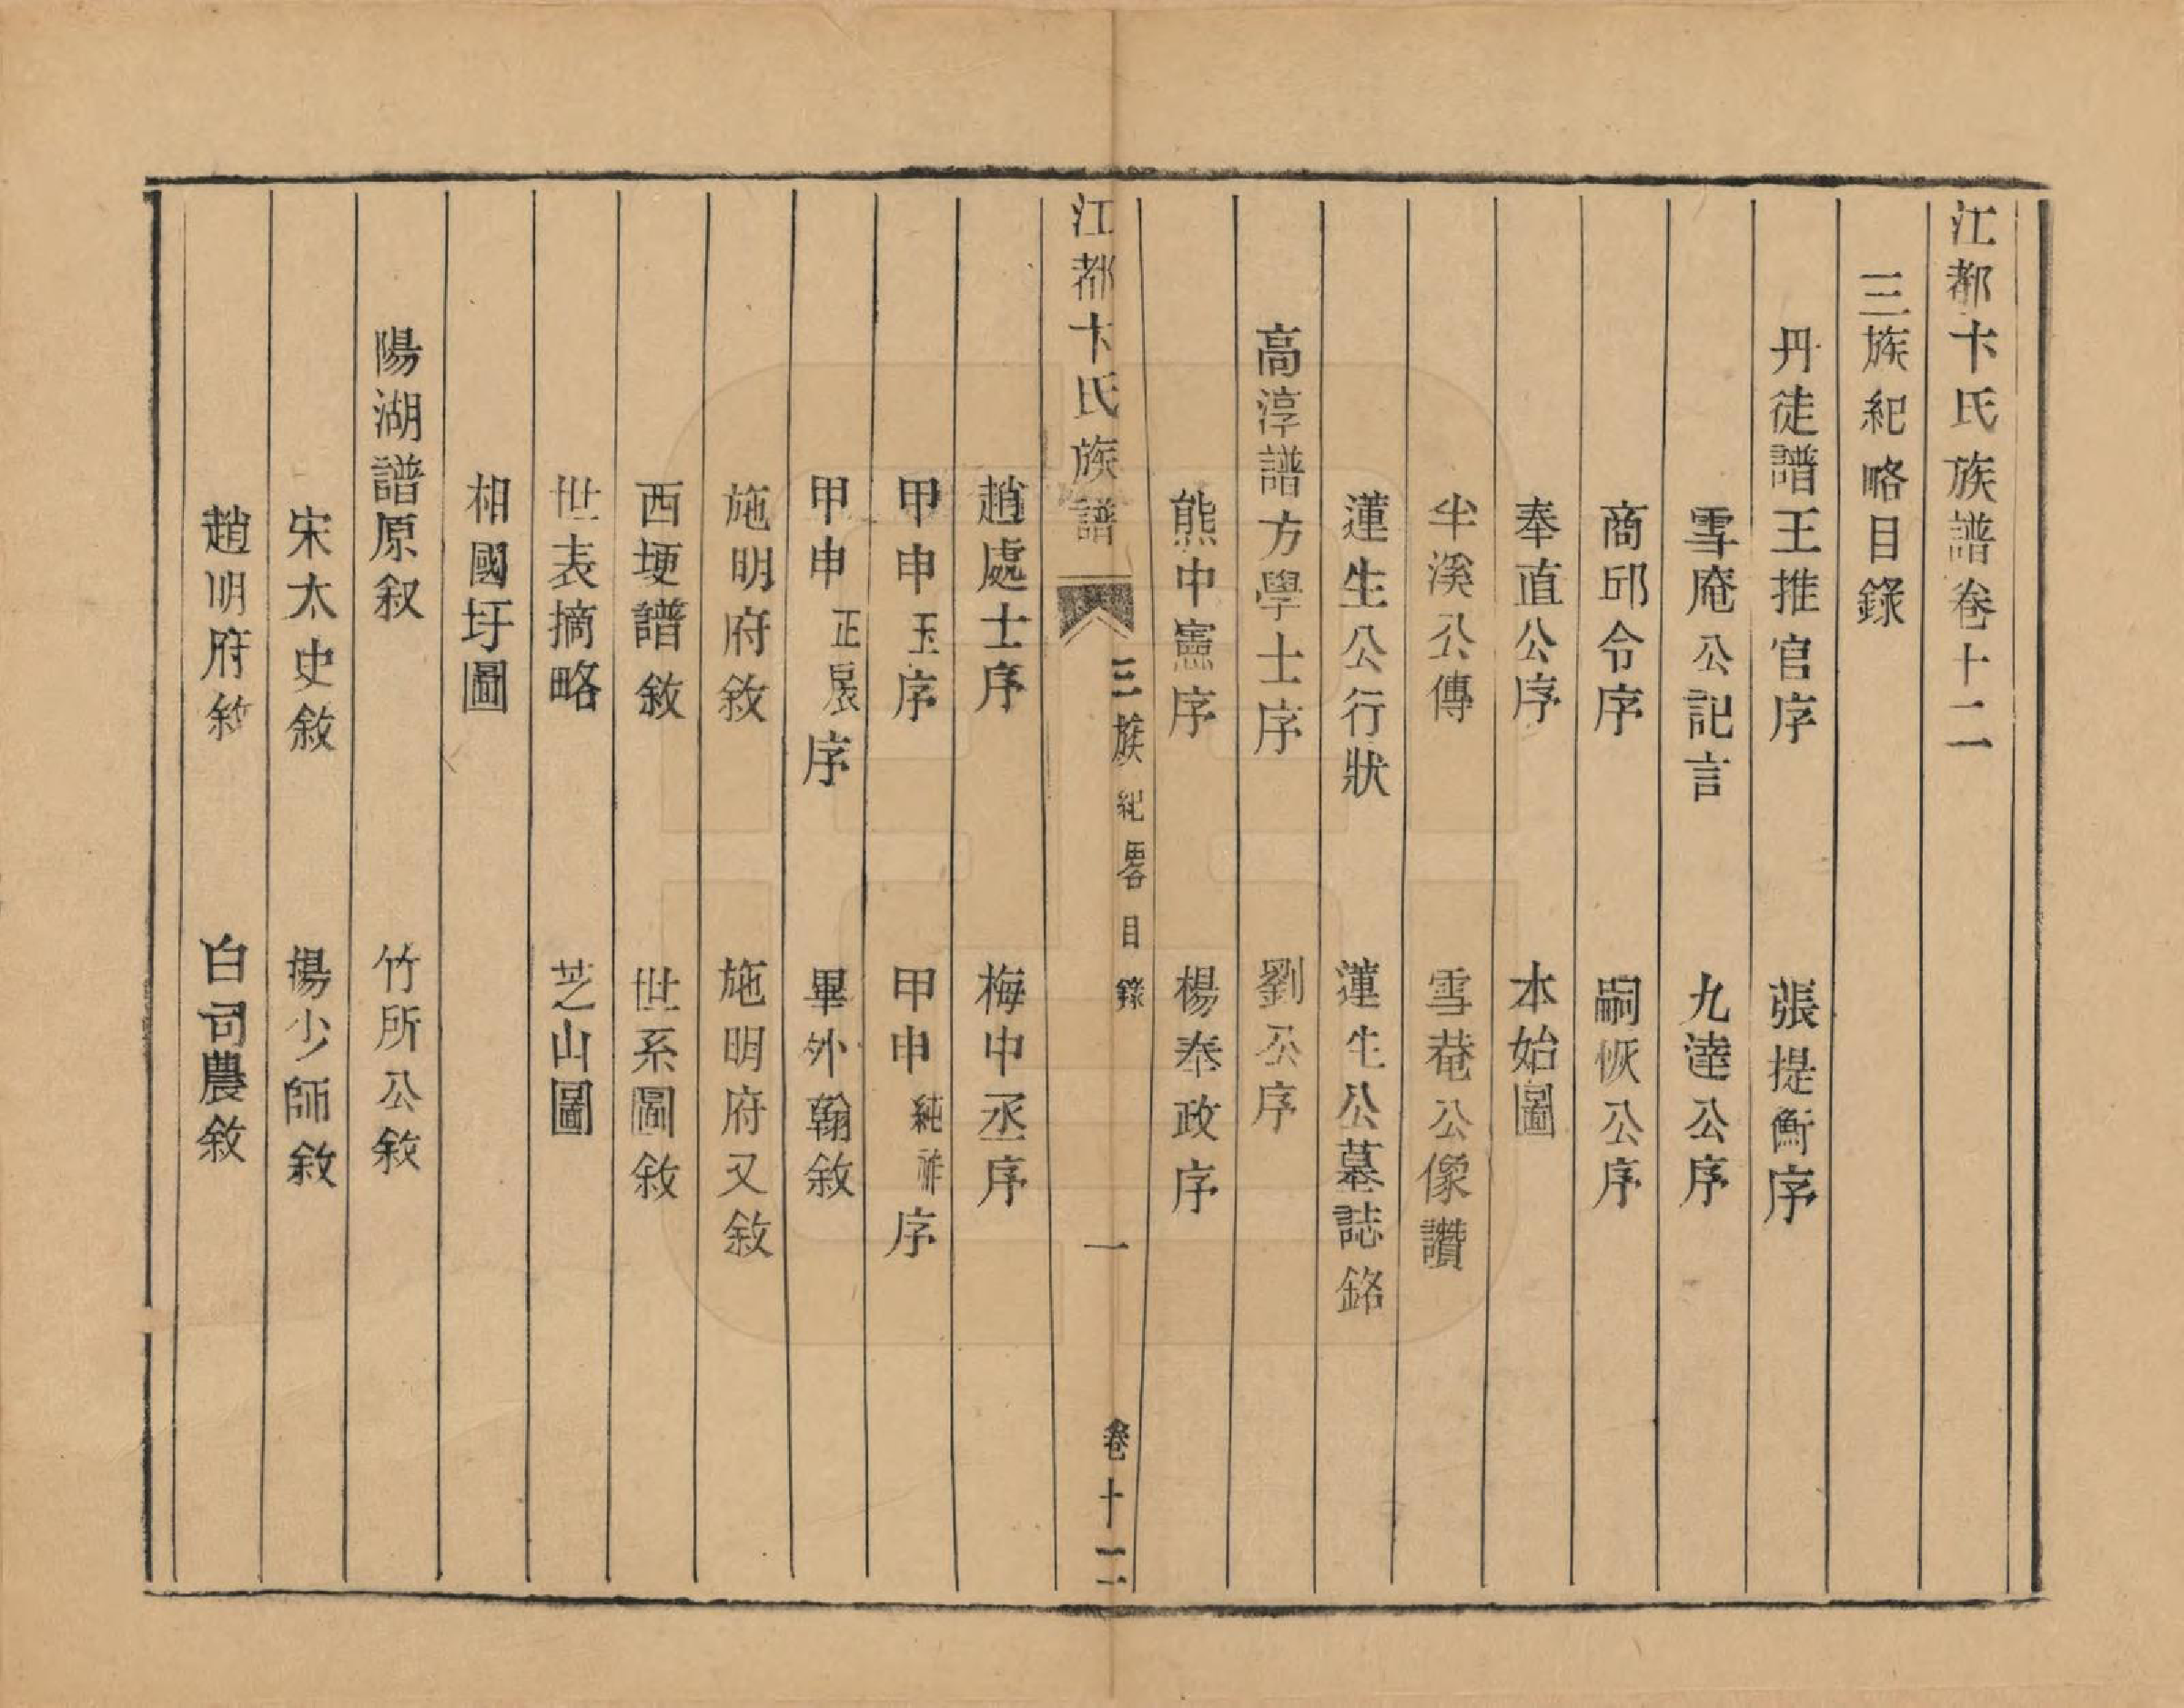 江都卞氏族譜卷十二
三族紀略目錄
丹徒譜王推官序　張提衡序
雪庵公記言　九達公序
商邱令序　嗣恢公序
奉直公序　本始圖
半溪公傳　雪菴公像讚
蓮生公行狀　蓮生公墓誌銘
高淳譜方學士序　劉公序
熊中憲序　楊奉政序
江都卞氏族譜　三族紀畧目錄　一　卷十二
趙處士序　梅中丞序
甲申玉序　甲申純祚序
甲申正晨序　畢外翰敘
施明府敘　施明府又敘
西埂譜敘　世系圖敘
世表摘略　芝山圖
相國圩圖
陽湖譜原叙　竹所公敘
宋太史敘　揚少師敘
趙明府敘　白司農敘